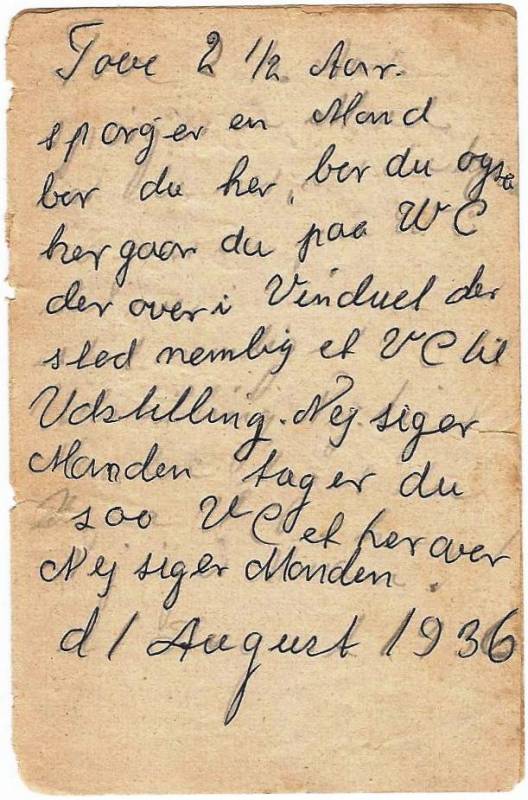 Tove 2 1/2 Aar.
spørger en Mand
bor du her, bor du ogsa
her gaar du paa WC
der over i Vinduet der
stod nemlig et VC til
Udstilling. Nej siger
Manden tager du
saa VC et her over
Nej siger Manden.
d 1 August 1936